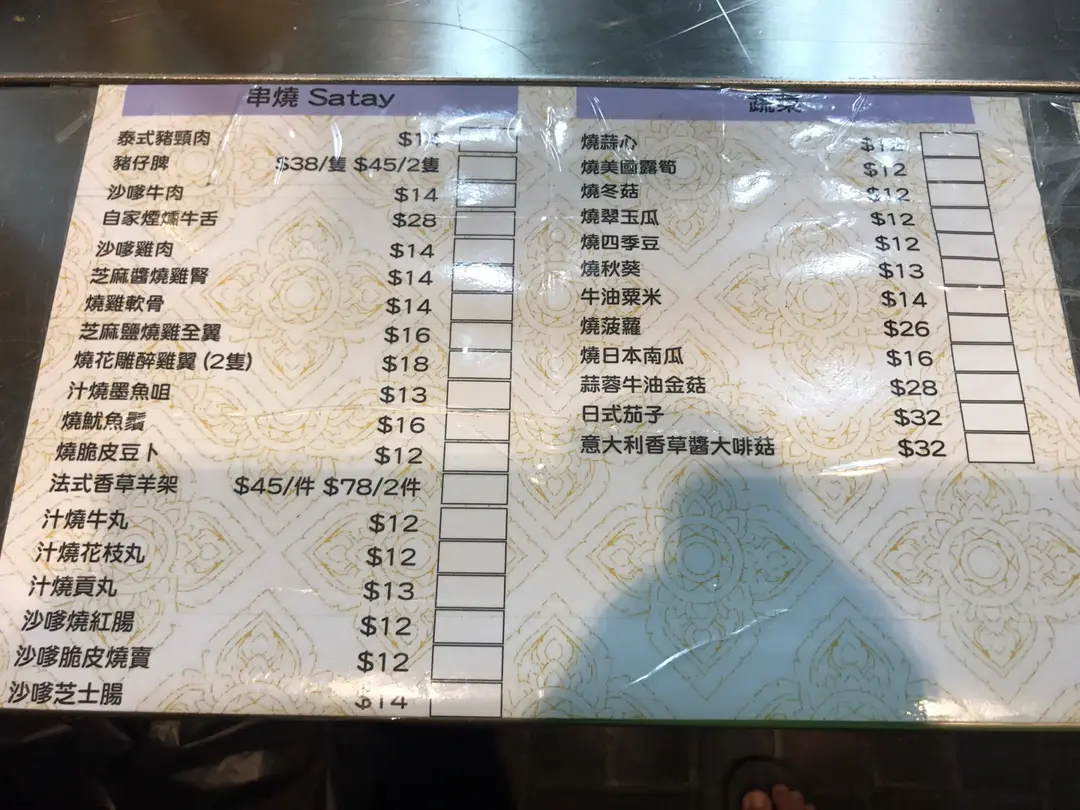 串燒 Satay
泰式豬頸肉 $14
豬仔脾 $38/隻 $45/2隻
沙嗲牛肉 $14
自家煙燻牛舌 $28
沙嗲雞肉 $14
芝麻醬燒雞腎 $14
燒雞軟骨 $14
芝麻鹽燒雞全翼 $16
燒花雕醉雞翼 (2隻) $18
汁燒墨魚咀 $13
燒魷魚鬚 $16
燒脆皮豆卜 $12
法式香草羊架 $45/件 $78/2件
汁燒牛丸 $12
汁燒花枝丸 $12
汁燒貢丸 $13
沙嗲燒紅腸 $12
沙嗲脆皮燒賣 $12
沙嗲芝士腸 $14
蔬菜
燒蒜心
燒美國露筍 $12
燒冬菇 $12
燒翠玉瓜 $12
燒四季豆 $12
燒秋葵 $13
牛油粟米 $14
燒菠蘿 $26
燒日本南瓜 $16
蒜蓉牛油金菇 $28
日式茄子 $32
意大利香草醬大啡菇 $32